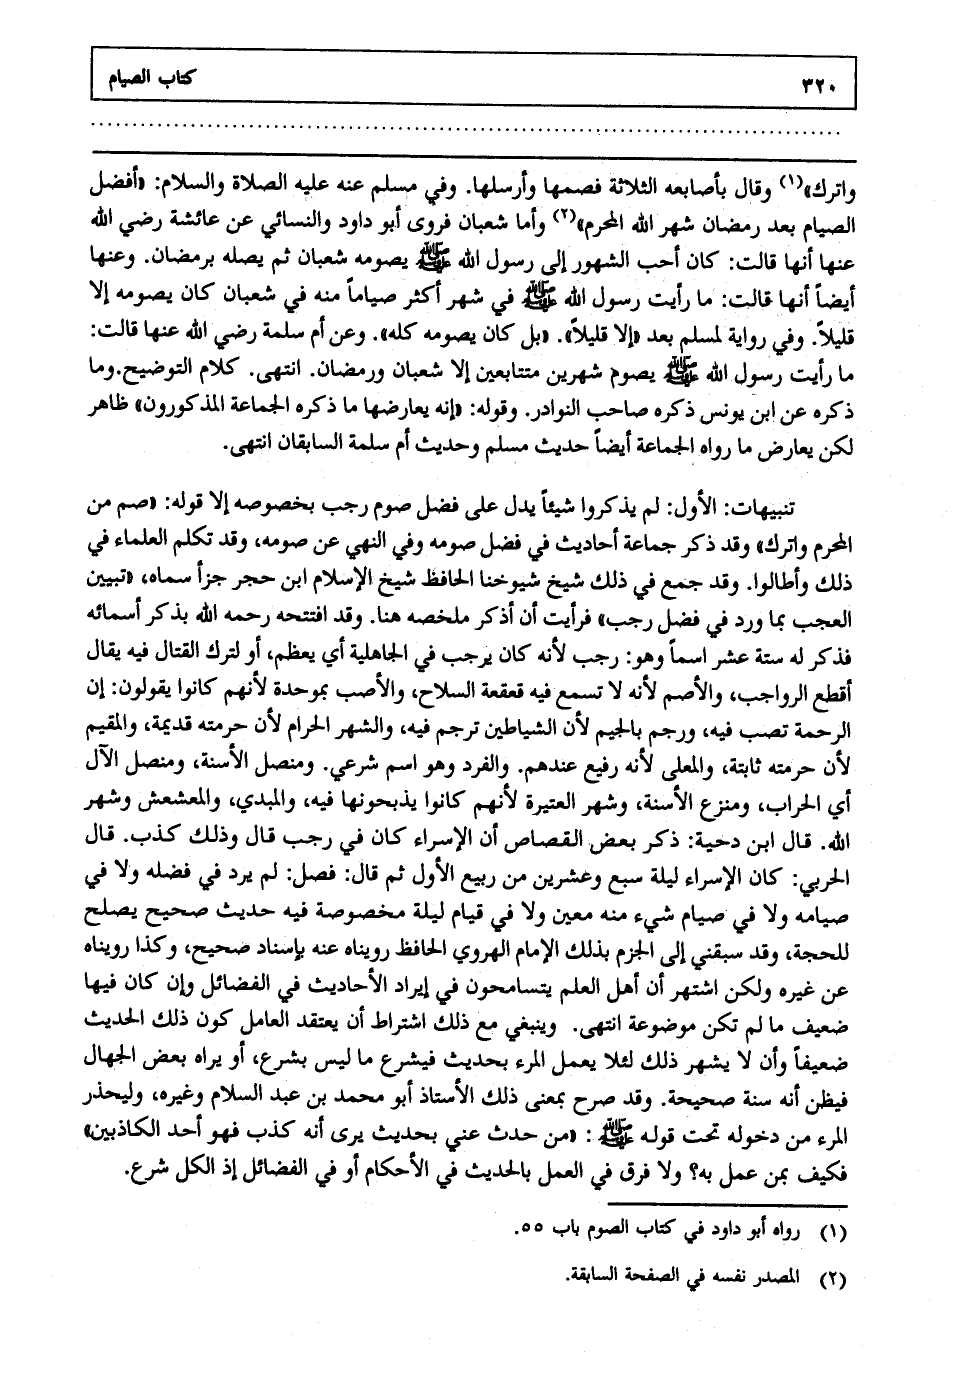 ٣٢٠ كتاب الصيام
واترك»(١) وقال بأصابعه الثلاثة فصمها وأرسلها. وفي مسلم عنه عليه الصلاة والسلام: «أفضل
الصيام بعد رمضان شهر الله المحرم»(٢) وأما شعبان فروى أبو داود والنسائي عن عائشة رضي الله
عنها أنها قالت: كان أحب الشهور إلى رسول الله ﷺ يصومه شعبان ثم يصله برمضان. وعنها
أيضاً أنها قالت: ما رأيت رسول الله ﷺ في شهر أكثر صياماً منه في شعبان كان يصومه إلا
قليلاً. وفي رواية لمسلم بعد «إلا قليلاً». «بل كان يصومه كله». وعن أم سلمة رضي الله عنها قالت:
ما رأيت رسول الله ﷺ يصوم شهرين متتابعين إلا شعبان ورمضان. انتهى. كلام التوضيح.وما
ذكره عن ابن يونس ذكره صاحب النوادر. وقوله: «إنه يعارضها ما ذكره الجماعة المذكورون» ظاهر
لكن يعارض ما رواه الجماعة أيضاً حديث مسلم وحديث أم سلمة السابقان انتهى.
تنبيهات: الأول: لم يذكروا شيئاً يدل على فضل صوم رجب بخصوصه إلا قوله: «صم من
المحرم واترك» وقد ذكر جماعة أحاديث في فضل صومه وفي النهي عن صومه، وقد تكلم العلماء في
ذلك وأطالوا. وقد جمع في ذلك شيخ شيوخنا الحافظ شيخ الإسلام ابن حجر جزأ سماه، «تبيين
العجب بما ورد في فضل رجب» فرأيت أن أذكر ملخصه هنا. وقد افتتحه رحمه الله بذكر أسمائه
فذكر له ستة عشر اسماً وهو: رجب لأنه كان يرجب في الجاهلية أي يعظم، أو لترك القتال فيه يقال
أقطع الرواجب، والأصم لأنه لا تسمع فيه قعقعة السلاح، والأصب بموحدة لأنهم كانوا يقولون: إن
الرحمة تصب فيه، ورجم بالجيم لأن الشياطين ترجم فيه، والشهر الحرام لأن حرمته قديمة، والمقيم
لأن حرمته ثابتة، والمعلى لأنه رفيع عندهم. والفرد وهو اسم شرعي. ومنصل الأسنة، ومنصل الآل
أي الحراب، ومنزع الأسنة، وشهر العتيرة لأنهم كانوا يذبحونها فيه، والمبدي، والمعشعش وشهر
الله. قال ابن دحية: ذكر بعض القصاص أن الإسراء كان في رجب قال وذلك كذب. قال
الحربي: كان الإسراء ليلة سبع وعشرين من ربيع الأول ثم قال: فصل: لم يرد في فضله ولا في
صيامه ولا في صيام شيء منه معين ولا في قيام ليلة مخصوصة فيه حديث صحيح يصلح
للحجة، وقد سبقني إلى الجزم بذلك الإمام الهروي الحافظ رويناه عنه بإسناد صحيح، وكذا رويناه
عن غيره ولكن اشتهر أن أهل العلم يتسامحون في إيراد الأحاديث في الفضائل وإن كان فيها
ضعيف ما لم تكن موضوعة انتهى. وينبغي مع ذلك اشتراط أن يعتقد العامل كون ذلك الحديث
ضعيفاً وأن لا يشهر ذلك لئلا يعمل المرء بحديث فيشرع ما ليس بشرع، أو يراه بعض الجهال
فيظن أنه سنة صحيحة. وقد صرح بمعنى ذلك الأستاذ أبو محمد بن عبد السلام وغيره، وليحذر
المرء من دخوله تحت قوله ﷺ : «من حدث عني بحديث يرى أنه كذب فهو أحد الكاذبين»
فكيف بمن عمل به؟ ولا فرق في العمل بالحديث في الأحكام أو في الفضائل إذ الكل شرع.
(١) رواه أبو داود في كتاب الصوم باب ٥٥.
(٢) المصدر نفسه في الصفحة السابقة.